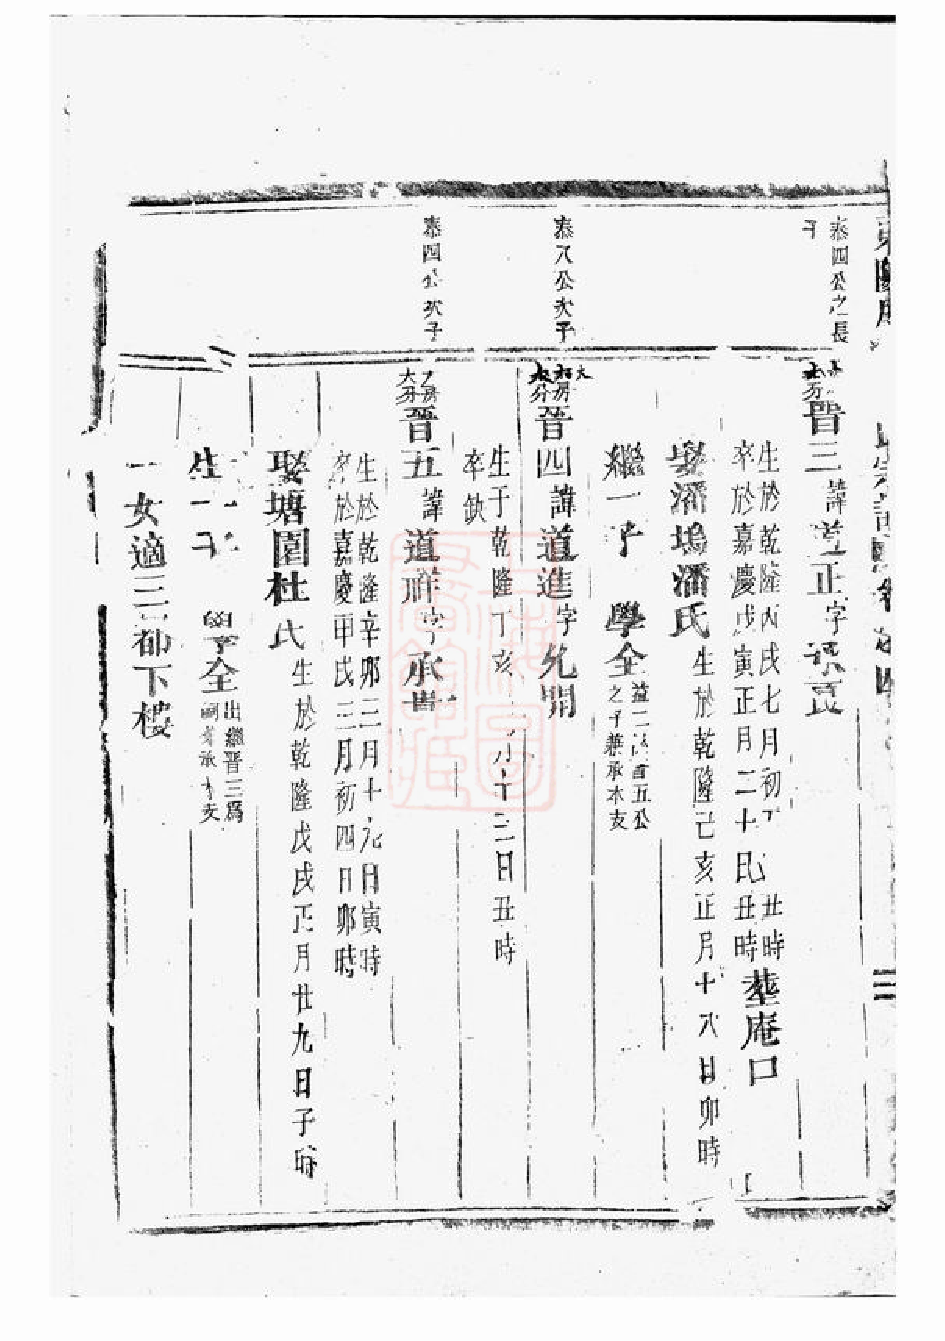 泰四公之長
子
晋三諱道正字
生於乾隆丙戌七月初 丑時
卒於嘉慶戊寅正月二十日丑時塟庵口
娶潘塢潘氏生於乾隆己亥正月十八日卯時
繼一子 學全
之子兼承本支
泰八公次子
晋四諱道進字允開
生于乾隆丁亥 二日丑時
卒缺
泰四公次子
晋五諱道祥字承
生於乾隆辛卯二月十九日寅時
卒於嘉慶甲戌三月初四日卯時
娶塘園杜氏生於乾隆戊戌正月廿九日子時
生一子 學全
出繼晋三爲
一女適三都下樓